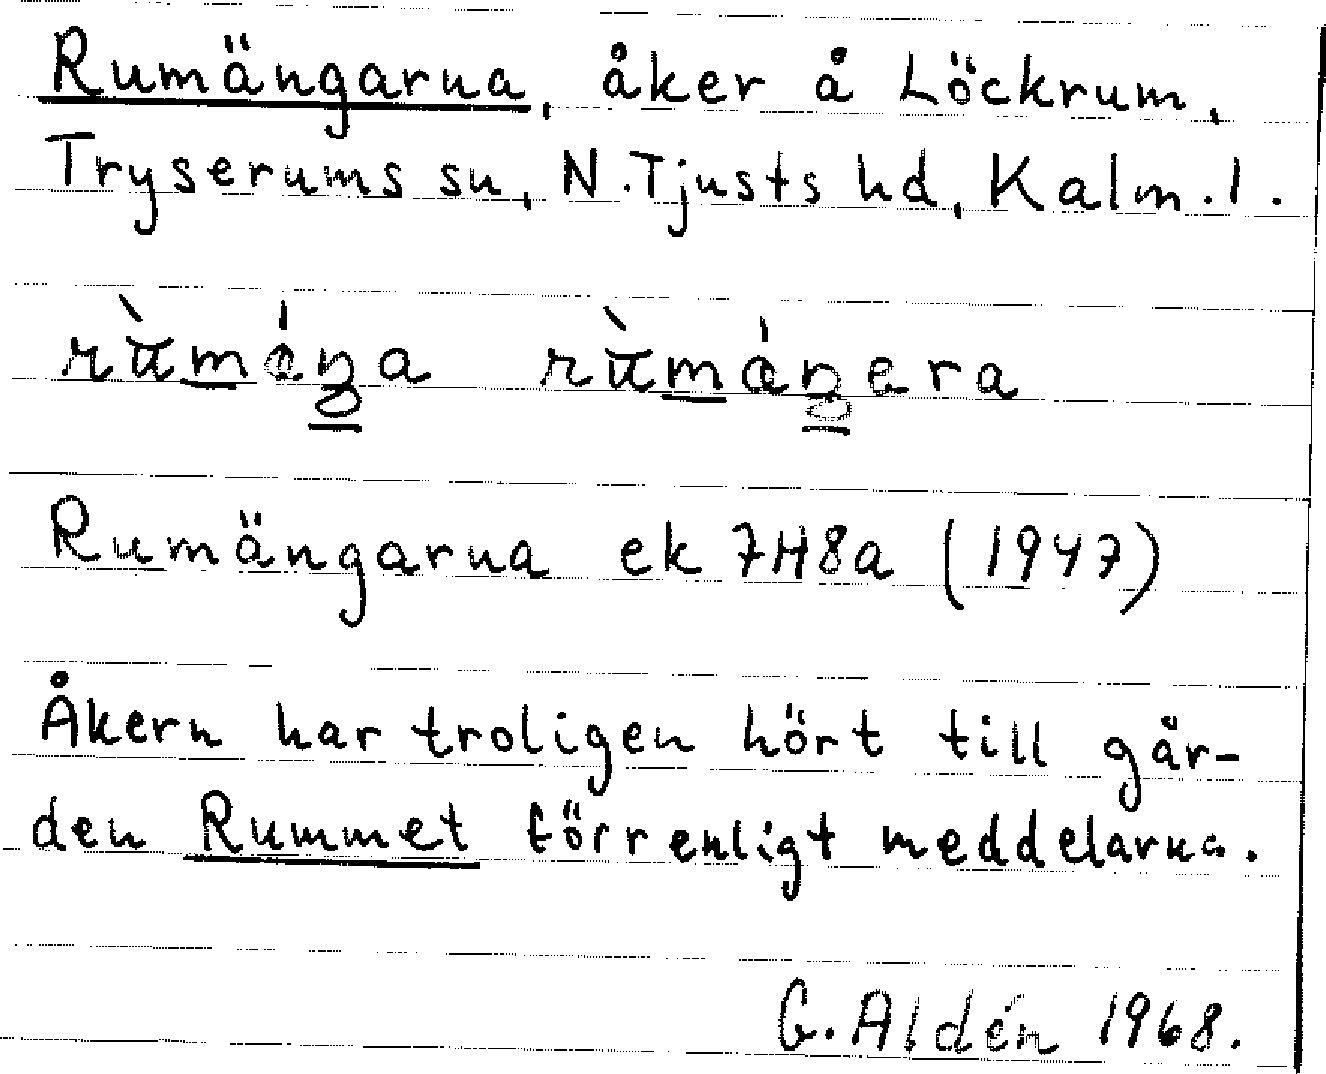 Rumängarna, åker å Löckrum,
Tryserums sn, N.Tjusts hd, Kalm.l.
Rumängarna ek 7H8a (1947)
Åkern har troligen hört till går-
den Rummet förr enligt meddelarna.
G. Aldén 1968.